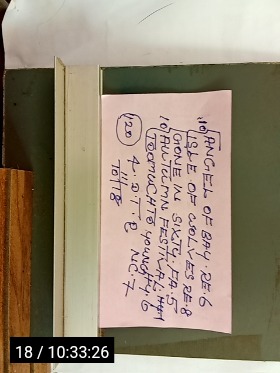 10) ANGEL OF BAY RE. 6
ISLE OF WOLVES RE. 8
GONE IN SIXTY. FA. 5
10) AUTUMN FESTIVAL,
TOMUCH TO YOUNG FY. 6
120 4. D T. 2 NC. 7
10/11/18
18 / 10:33:26